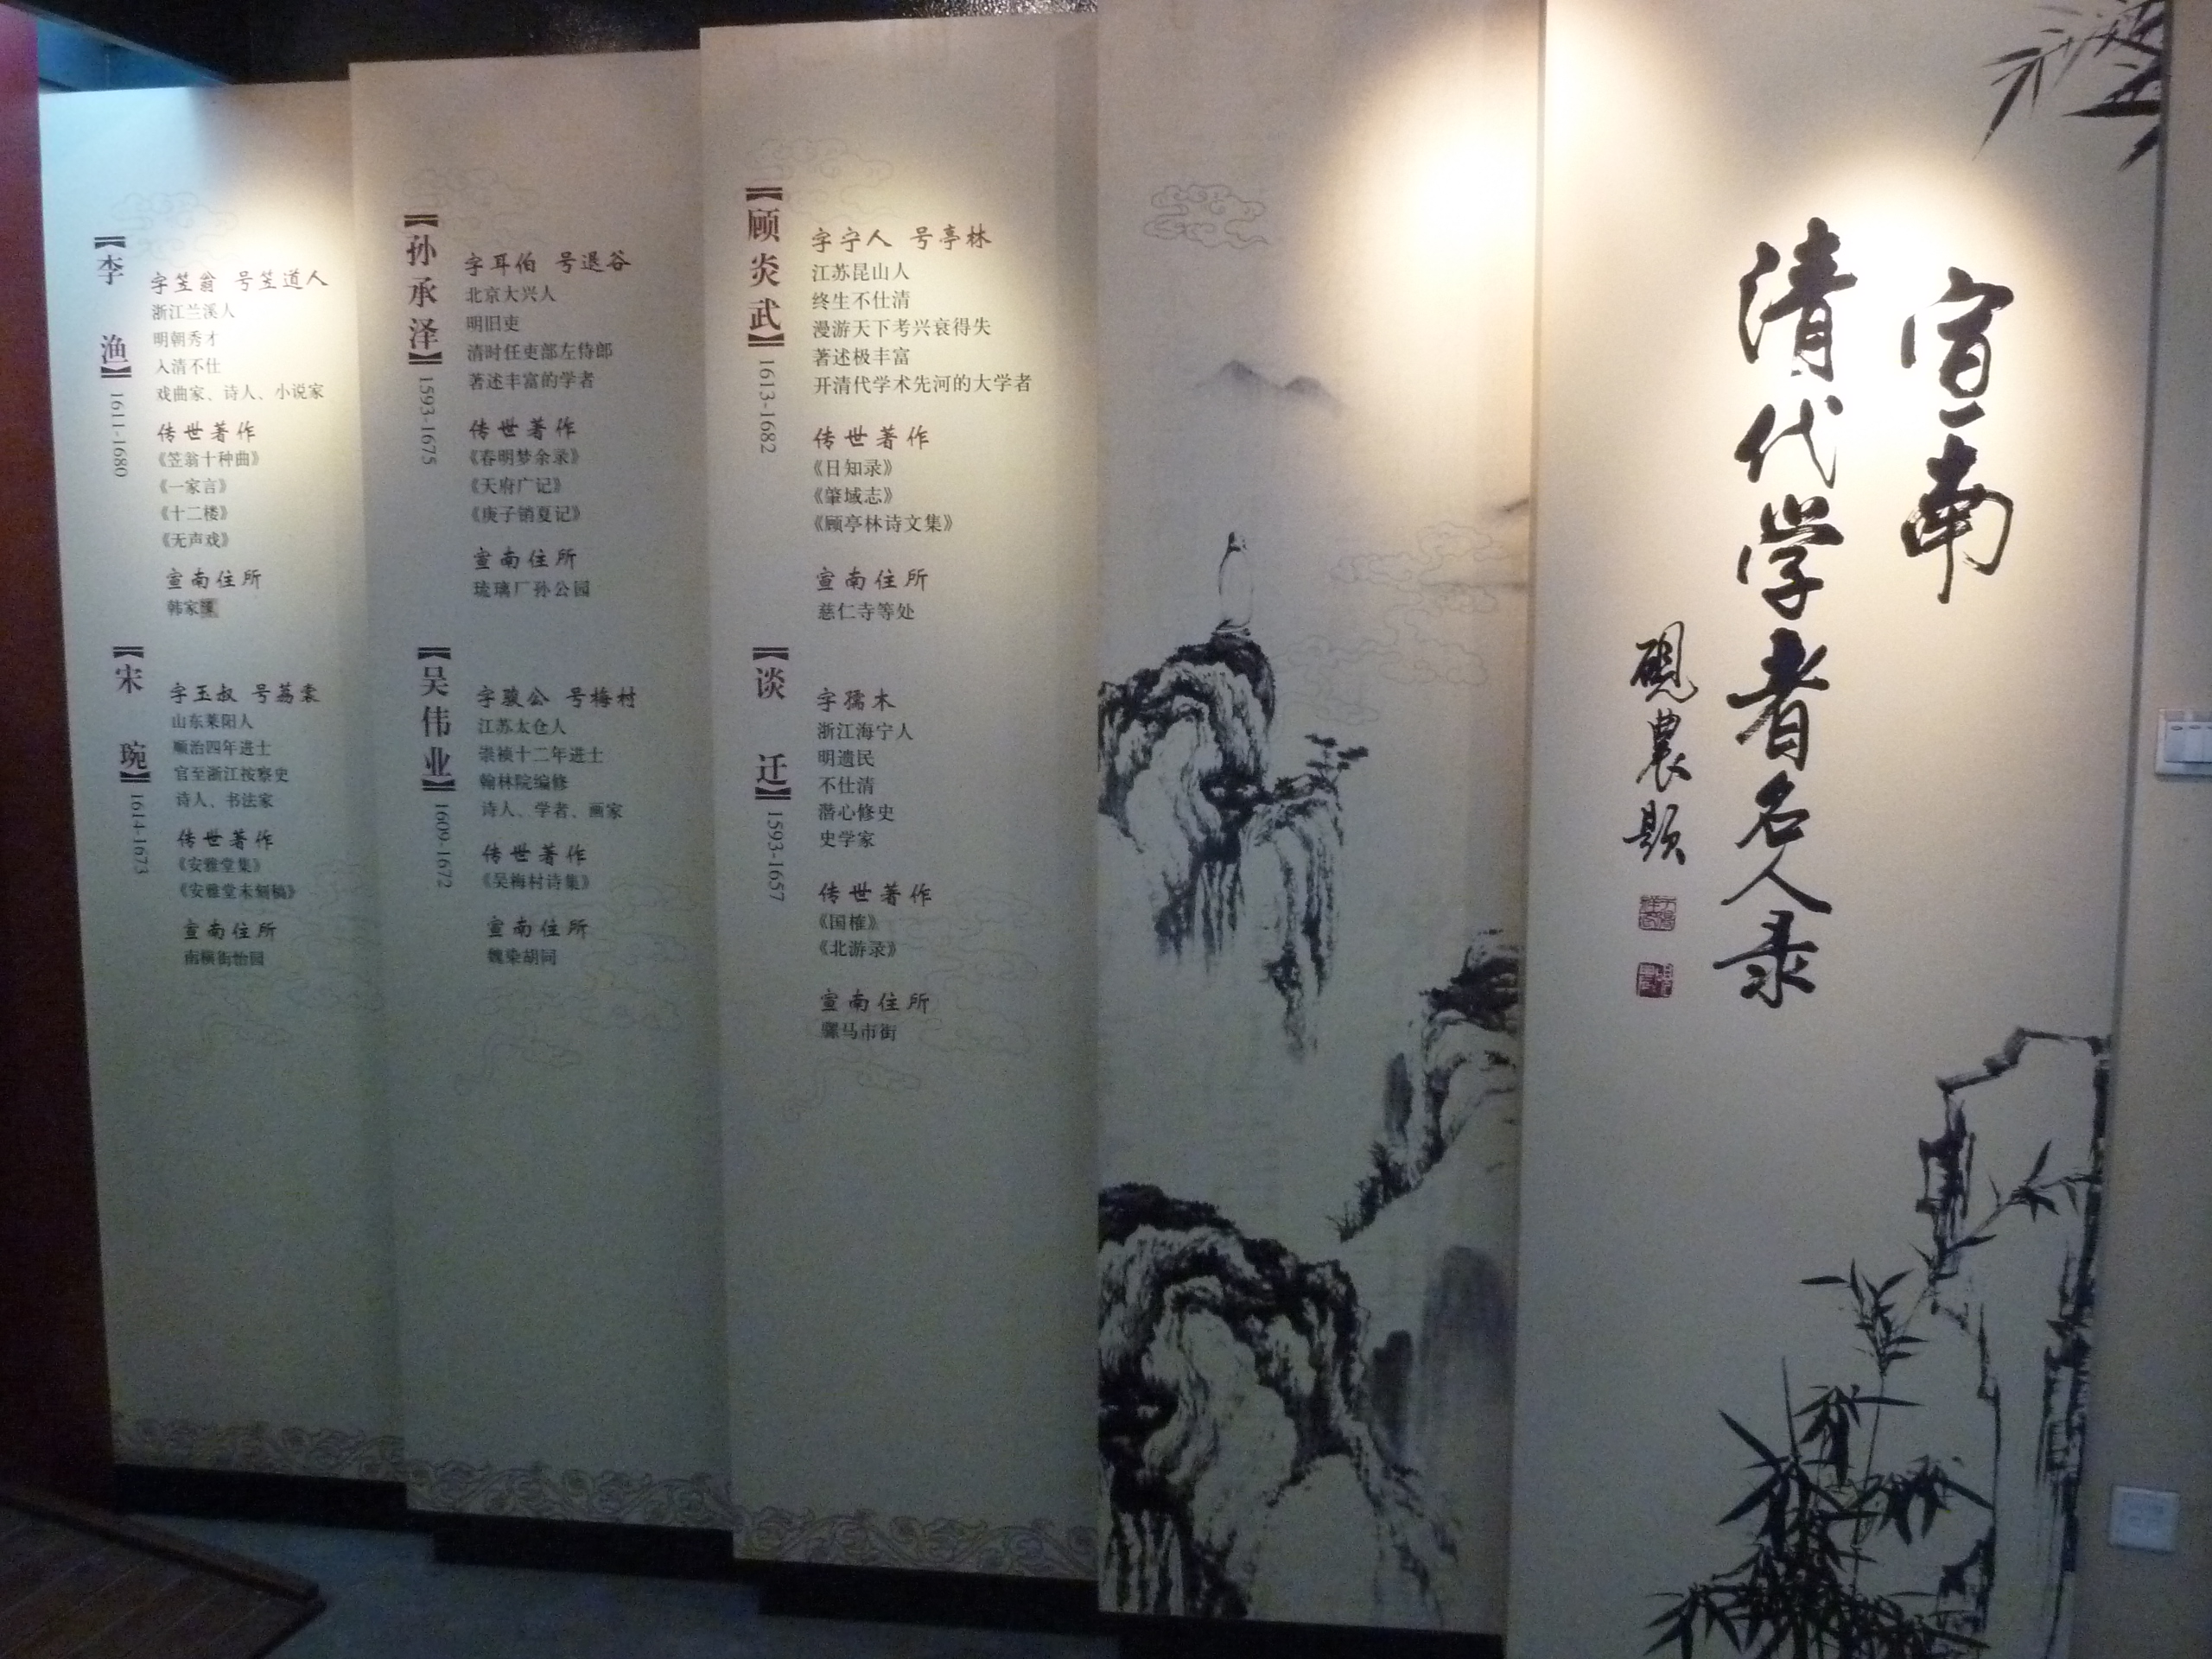 宣南
清代学者名人录
砚農题
【顾炎武】1613-1682
字宁人 号亭林
江苏昆山人
终生不仕清
漫游天下考兴衰得失
著述极丰富
开清代学术先河的大学者
传世著作
《日知录》
《肇域志》
《顾亭林诗文集》
宣南住所
慈仁寺等处
【谈迁】1593-1657
字孺木
浙江海宁人
明遗民
不仕清
潜心修史
史学家
传世著作
《国榷》
《北游录》
宣南住所
骡马市街
【孙承泽】1593-1675
字耳伯 号退谷
北京大兴人
明旧吏
清时任吏部左侍郎
著述丰富的学者
传世著作
《春明梦余录》
《天府广记》
《庚子销夏记》
宣南住所
琉璃厂孙公园
【吴伟业】1609-1672
字骏公 号梅村
江苏太仓人
崇祯十二年进士
翰林院编修
诗人、学者、画家
传世著作
《吴梅村诗集》
宣南住所
魏染胡同
【李渔】1611-1680
字笠翁 号笠道人
浙江兰溪人
明朝秀才
入清不仕
戏曲家、诗人、小说家
传世著作
《笠翁十种曲》
《一家言》
《十二楼》
《无声戏》
宣南住所
韩家
【宋琬】1614-1673
字玉叔 号荔裳
山东莱阳人
顺治四年进士
官至浙江按察史
诗人、书法家
传世著作
《安雅堂集》
《安雅堂未刻稿》
宣南住所
南横街怡园